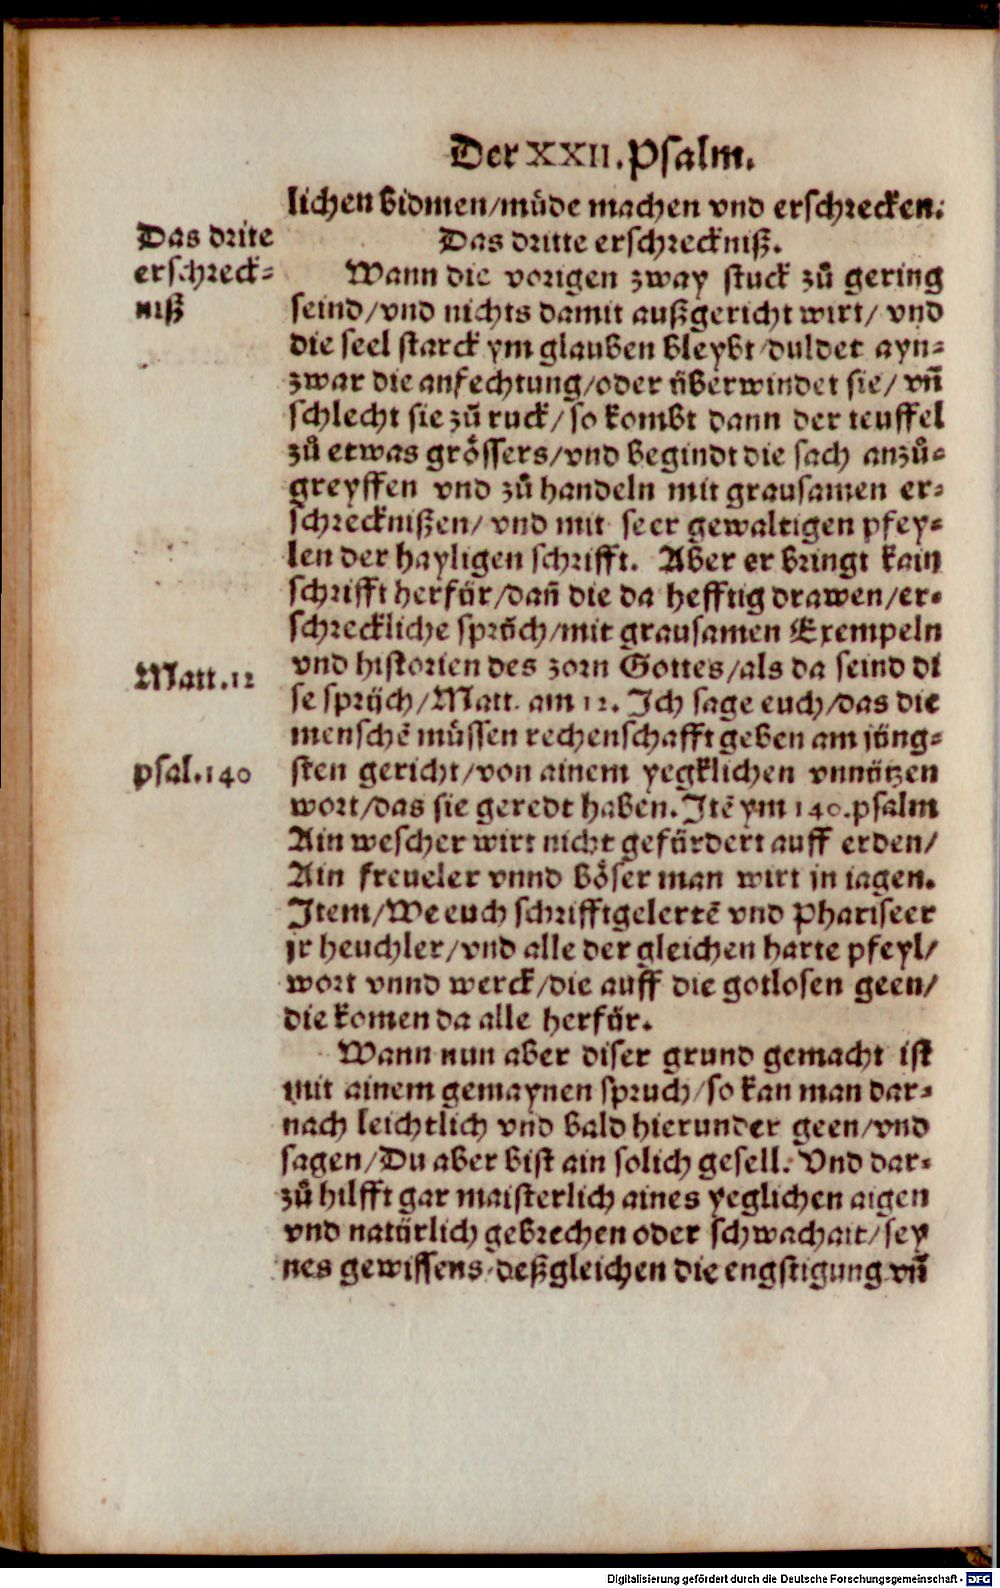 Der XXII. Psalm.
lichen bidmen/müde machen vnd erschrecken.
Das drite
erschreck-
niß
Das dritte erschreckniß.
Wann die vorigen zway stuck zů gering
seind/vnd nichts damit außgericht wirt/ vnd
die seel starck ym glauben bleybt/duldet ayn-
zwar die anfechtung/oder überwindet sie/ vñ
schlecht sie zů ruck/ so kombt dann der teuffel
zů etwas grössers/vnd begindt die sach anzů-
greyffen vnd zů handeln mit grausamen er-
schrecknißen/ vnd mit seer gewaltigen pfey-
len der hayligen schrifft. Aber er bringt kain
schrifft herfür/dañ die da hefftig drawen/er-
schreckliche sprüch/mit grausamen Exempeln
vnd historien des zorn Gottes/als da seind di
Matt.12
se sprüch/Matt. am 12. Ich sage euch/das die
menschē müssen rechenschafft geben am jüng-
psal.140
sten gericht/von ainem yegklichen vnnützen
wort/das sie geredt haben. Itē ym 140.psalm
Ain wescher wirt nicht gefürdert auff erden/
Ain freueler vnnd böser man wirt in iagen.
Item/We euch schrifftgelertē vnd Phariseer
jr heuchler/vnd alle der gleichen harte pfeyl/
wort vnnd werck/die auff die gotlosen geen/
die komen da alle herfür.
Wann nun aber diser grund gemacht ist
mit ainem gemaynen spruch/so kan man dar-
nach leichtlich vnd bald hierunder geen/vnd
sagen/Du aber bist ain solich gesell. Vnd dar-
zů hilfft gar maisterlich aines yeglichen aigen
vnd natürlich gebrechen oder schwachait/sey
nes gewissens/deßgleichen die engstigung vñ
Digitalisierung gefördert durch die Deutsche Forschungsgemeinschaft - DFG